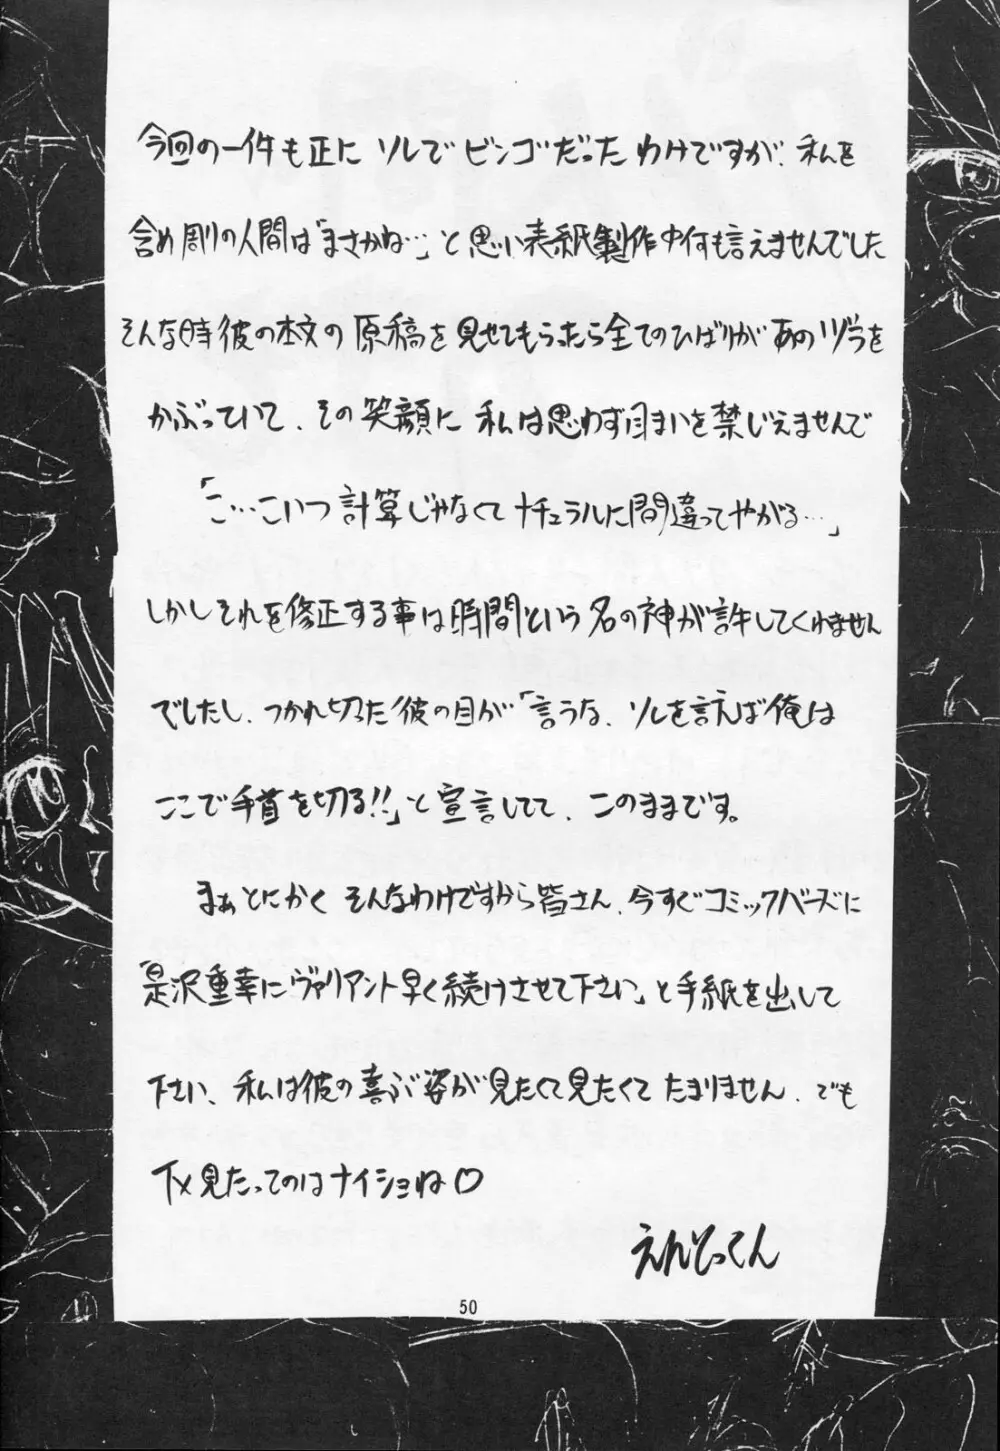 今回の一件も正に ソレで ビンゴだった わけですが、私を
含め周りの人間は「まさかね…」と思い表紙製作中何も言えませんでした
そんな時彼の本文の原稿を見せてもらったら全てのひばりがあのヅラを
かぶっていて、その笑顔に 私は思わず目まいを禁じえませんで
「こ…こいつ計算じゃなくてナチュラルに間違ってやがる…」
しかしそれを修正する事は時間という名の神が許してくれません
でしたし、つかれ切った彼の目が「言うな、ソレを言えば俺は
ここで手首を切る!!」と宣言してて、このままです。
まぁとにかく そんなわけですから皆さん、今すぐコミックバーズに
「是沢重幸にヴァリアント早く続けさせて下さい」と手紙を出して
下さい、私は彼の喜ぶ姿が見たくて見たくてたまりません、でも
下×見たってのはナイショね♡
えんどってん
50